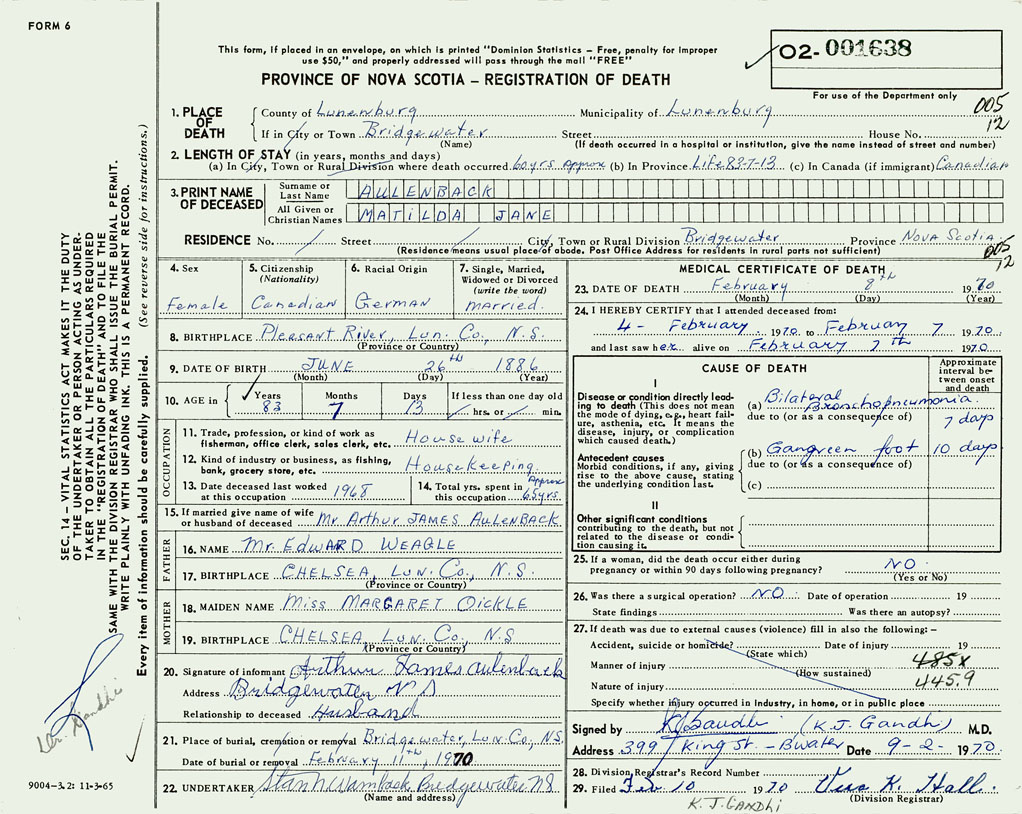 FORM 6
This form, if placed in an envelope, on which is printed "Dominion Statistics – Free, penalty for improper
use $50," and properly addressed will pass through the mail "FREE"
PROVINCE OF NOVA SCOTIA – REGISTRATION OF DEATH
02- 001638
For use of the Department only
005
12
1. PLACE OF DEATH
County of Lunenburg Municipality of Lunenburg
If in City or Town Bridgewater Street House No.
(Name) (If death occurred in a hospital or institution, give the name instead of street and number)
2. LENGTH OF STAY (in years, months and days)
(a) In City, Town or Rural Division where death occurred 60 yrs Approx (b) In Province Life 83-7-13 (c) In Canada (if immigrant) Canadian
3. PRINT NAME OF DECEASED
Surname or Last Name AULENBACK
All Given or Christian Names MATILDA JANE
RESIDENCE No. / Street / City, Town or Rural Division Bridgewater Province NOVA SCOTIA
(Residence means usual place of abode. Post Office Address for residents in rural parts not sufficient)
005
12
4. Sex
Female
5. Citizenship (Nationality)
Canadian
6. Racial Origin
German
7. Single, Married, Widowed or Divorced (write the word)
married.
8. BIRTHPLACE Pleasant River, Lun. Co., N.S.
(Province or Country)
9. DATE OF BIRTH JUNE 26th 1886
(Month) (Day) (Year)
10. AGE in Years 83 Months 7 Days 13 If less than one day old / hrs. or / min.
OCCUPATION
11. Trade, profession, or kind of work as fisherman, office clerk, sales clerk, etc. House wife
12. Kind of industry or business, as fishing, bank, grocery store, etc. Housekeeping.
13. Date deceased last worked at this occupation 1968
14. Total yrs. spent in this occupation Approx 65 yrs.
15. If married give name of wife or husband of deceased Mr. Arthur JAMES AULENBACK
FATHER
16. NAME Mr. EDWARD WEAGLE
17. BIRTHPLACE CHELSEA, LUN. Co., N.S.
(Province or Country)
MOTHER
18. MAIDEN NAME Miss MARGARET OICKLE
19. BIRTHPLACE CHELSEA, LUN. Co., N.S
(Province or Country)
20. Signature of informant Arthur James Aulenback
Address Bridgewater N S
Relationship to deceased Husband
21. Place of burial, cremation or removal Bridgewater, Lun. Co., N.S.
Date of burial or removal February 11th, 1970
22. UNDERTAKER Bridgewater NS
(Name and address)
MEDICAL CERTIFICATE OF DEATH
23. DATE OF DEATH February 8th 1970
(Month) (Day) (Year)
24. I HEREBY CERTIFY that I attended deceased from:
4 - February 1970 to February 7 1970
and last saw her alive on February 7th 1970
CAUSE OF DEATH
Approximate interval between onset and death
I
Disease or condition directly leading to death (This does not mean the mode of dying, e.g., heart failure, asthenia, etc. It means the disease, injury, or complication which caused death.)
(a) Bilateral Bronchopneumonia. 7 days
due to (or as a consequence of)
Antecedent causes
Morbid conditions, if any, giving rise to the above cause, stating the underlying condition last.
(b) Gangreen foot 10 days
due to (or as a consequence of)
(c)
II
Other significant conditions
contributing to the death, but not related to the disease or condition causing it.
25. If a woman, did the death occur either during pregnancy or within 90 days following pregnancy? NO
(Yes or No)
26. Was there a surgical operation? NO Date of operation 19
State findings Was there an autopsy?
27. If death was due to external causes (violence) fill in also the following: –
Accident, suicide or homicide? Date of injury 19
(State which)
485X
Manner of injury
(How sustained)
445.9
Nature of injury
Specify whether injury occurred in industry, in home, or in public place
Signed by K J Gandhi (K.J. Gandhi) M.D.
Address 399 / King St. - Bwater Date 9-2- 1970
28. Division Registrar's Record Number
29. Filed Feb 10 1970 K. Hall.
(Division Registrar)
K. J. GANDHI
SEC. 14 – VITAL STATISTICS ACT MAKES IT THE DUTY
OF THE UNDERTAKER OR PERSON ACTING AS UNDER-
TAKER TO OBTAIN ALL THE PARTICULARS REQUIRED
IN THE "REGISTRATION OF DEATH" AND TO FILE THE
SAME WITH THE DIVISION REGISTRAR WHO SHALL ISSUE THE BURIAL PERMIT.
WRITE PLAINLY WITH UNFADING INK. THIS IS A PERMANENT RECORD.
Every item of information should be carefully supplied. (See reverse side for instructions.)
Dr. Gandhi
9004-3.2: 11-3-65